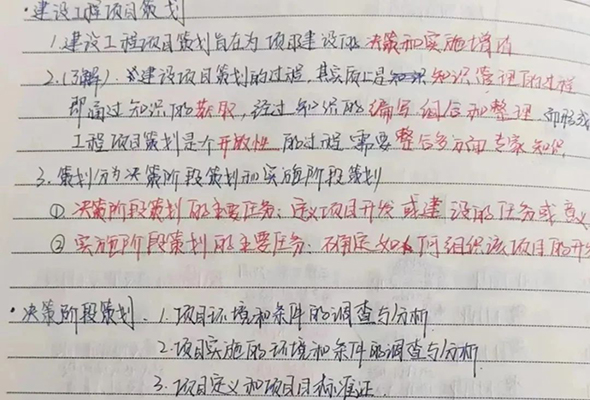 ·建设工程项目策划
1.建设工程项目策划旨在为项目建设的决策和实施增值
2.(了解).建设项目策划的过程,其实质上是知识管理的过程
即通过知识的获取,经过知识的编写、组合和整理,而形成
工程项目策划是个开放性的过程,需要整合多方面专家知识
3.策划分为决策阶段策划和实施阶段策划
①决策阶段策划的主要任务:定义项目开发或建设的任务或意义
②实施阶段策划的主要任务:确定如何组织该项目的开
·决策阶段策划.1.项目环境和条件的调查与分析
2.项目实施的环境和条件的调查与分析
3.项目定义和项目目标论证